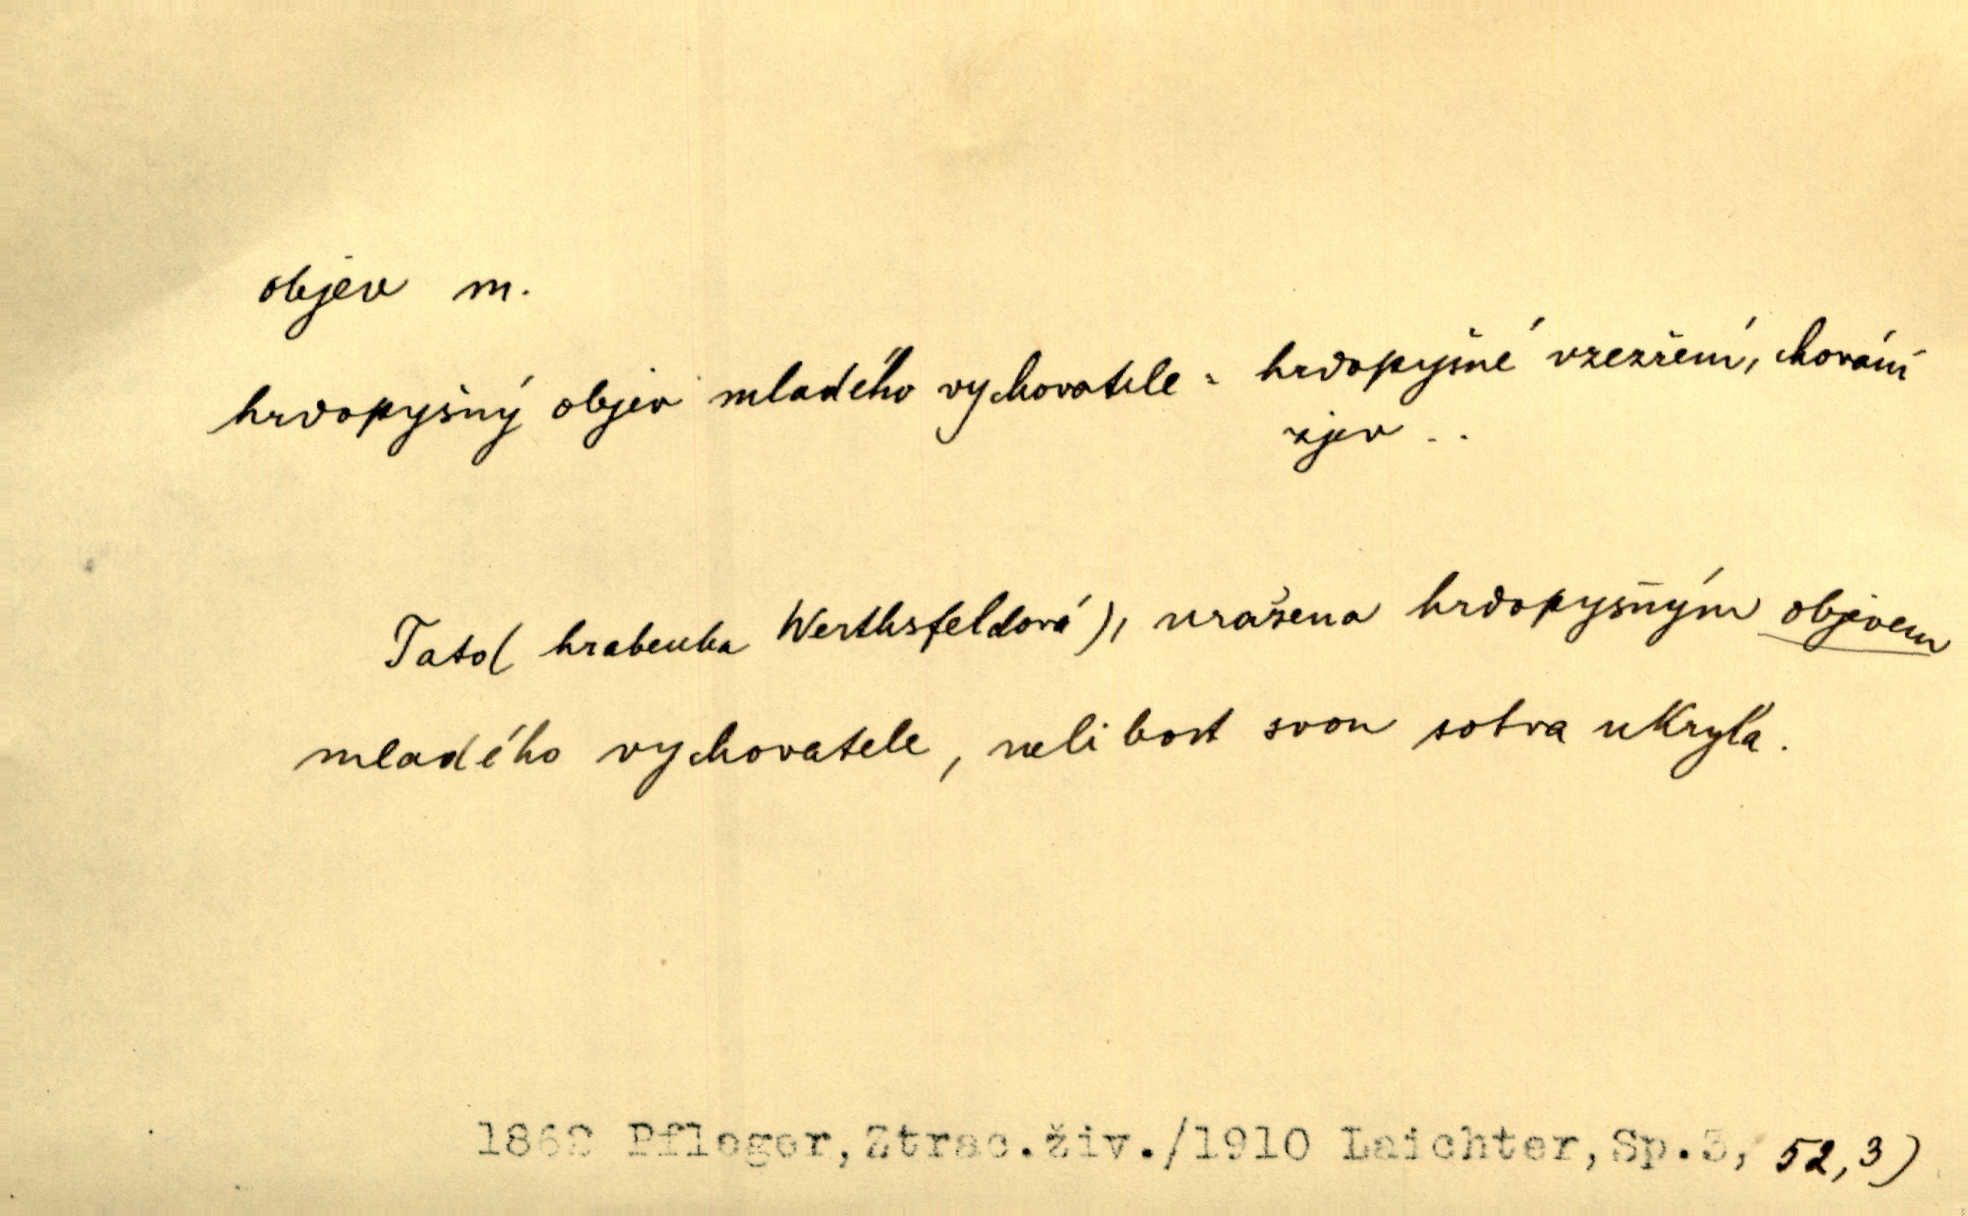 objev m.
hrdopyšný objev mladého vychovatele = hrdopyšné vzezření, chování
zjev ..
Tato( hraběnka Werthsfeldová), uražena hrdopyšným objevem
mladého vychovatele, nelibost svou sotva ukryla.
1862 Pfleger,Ztrac.živ./1910 Laichter,Sp.3, 52,3)